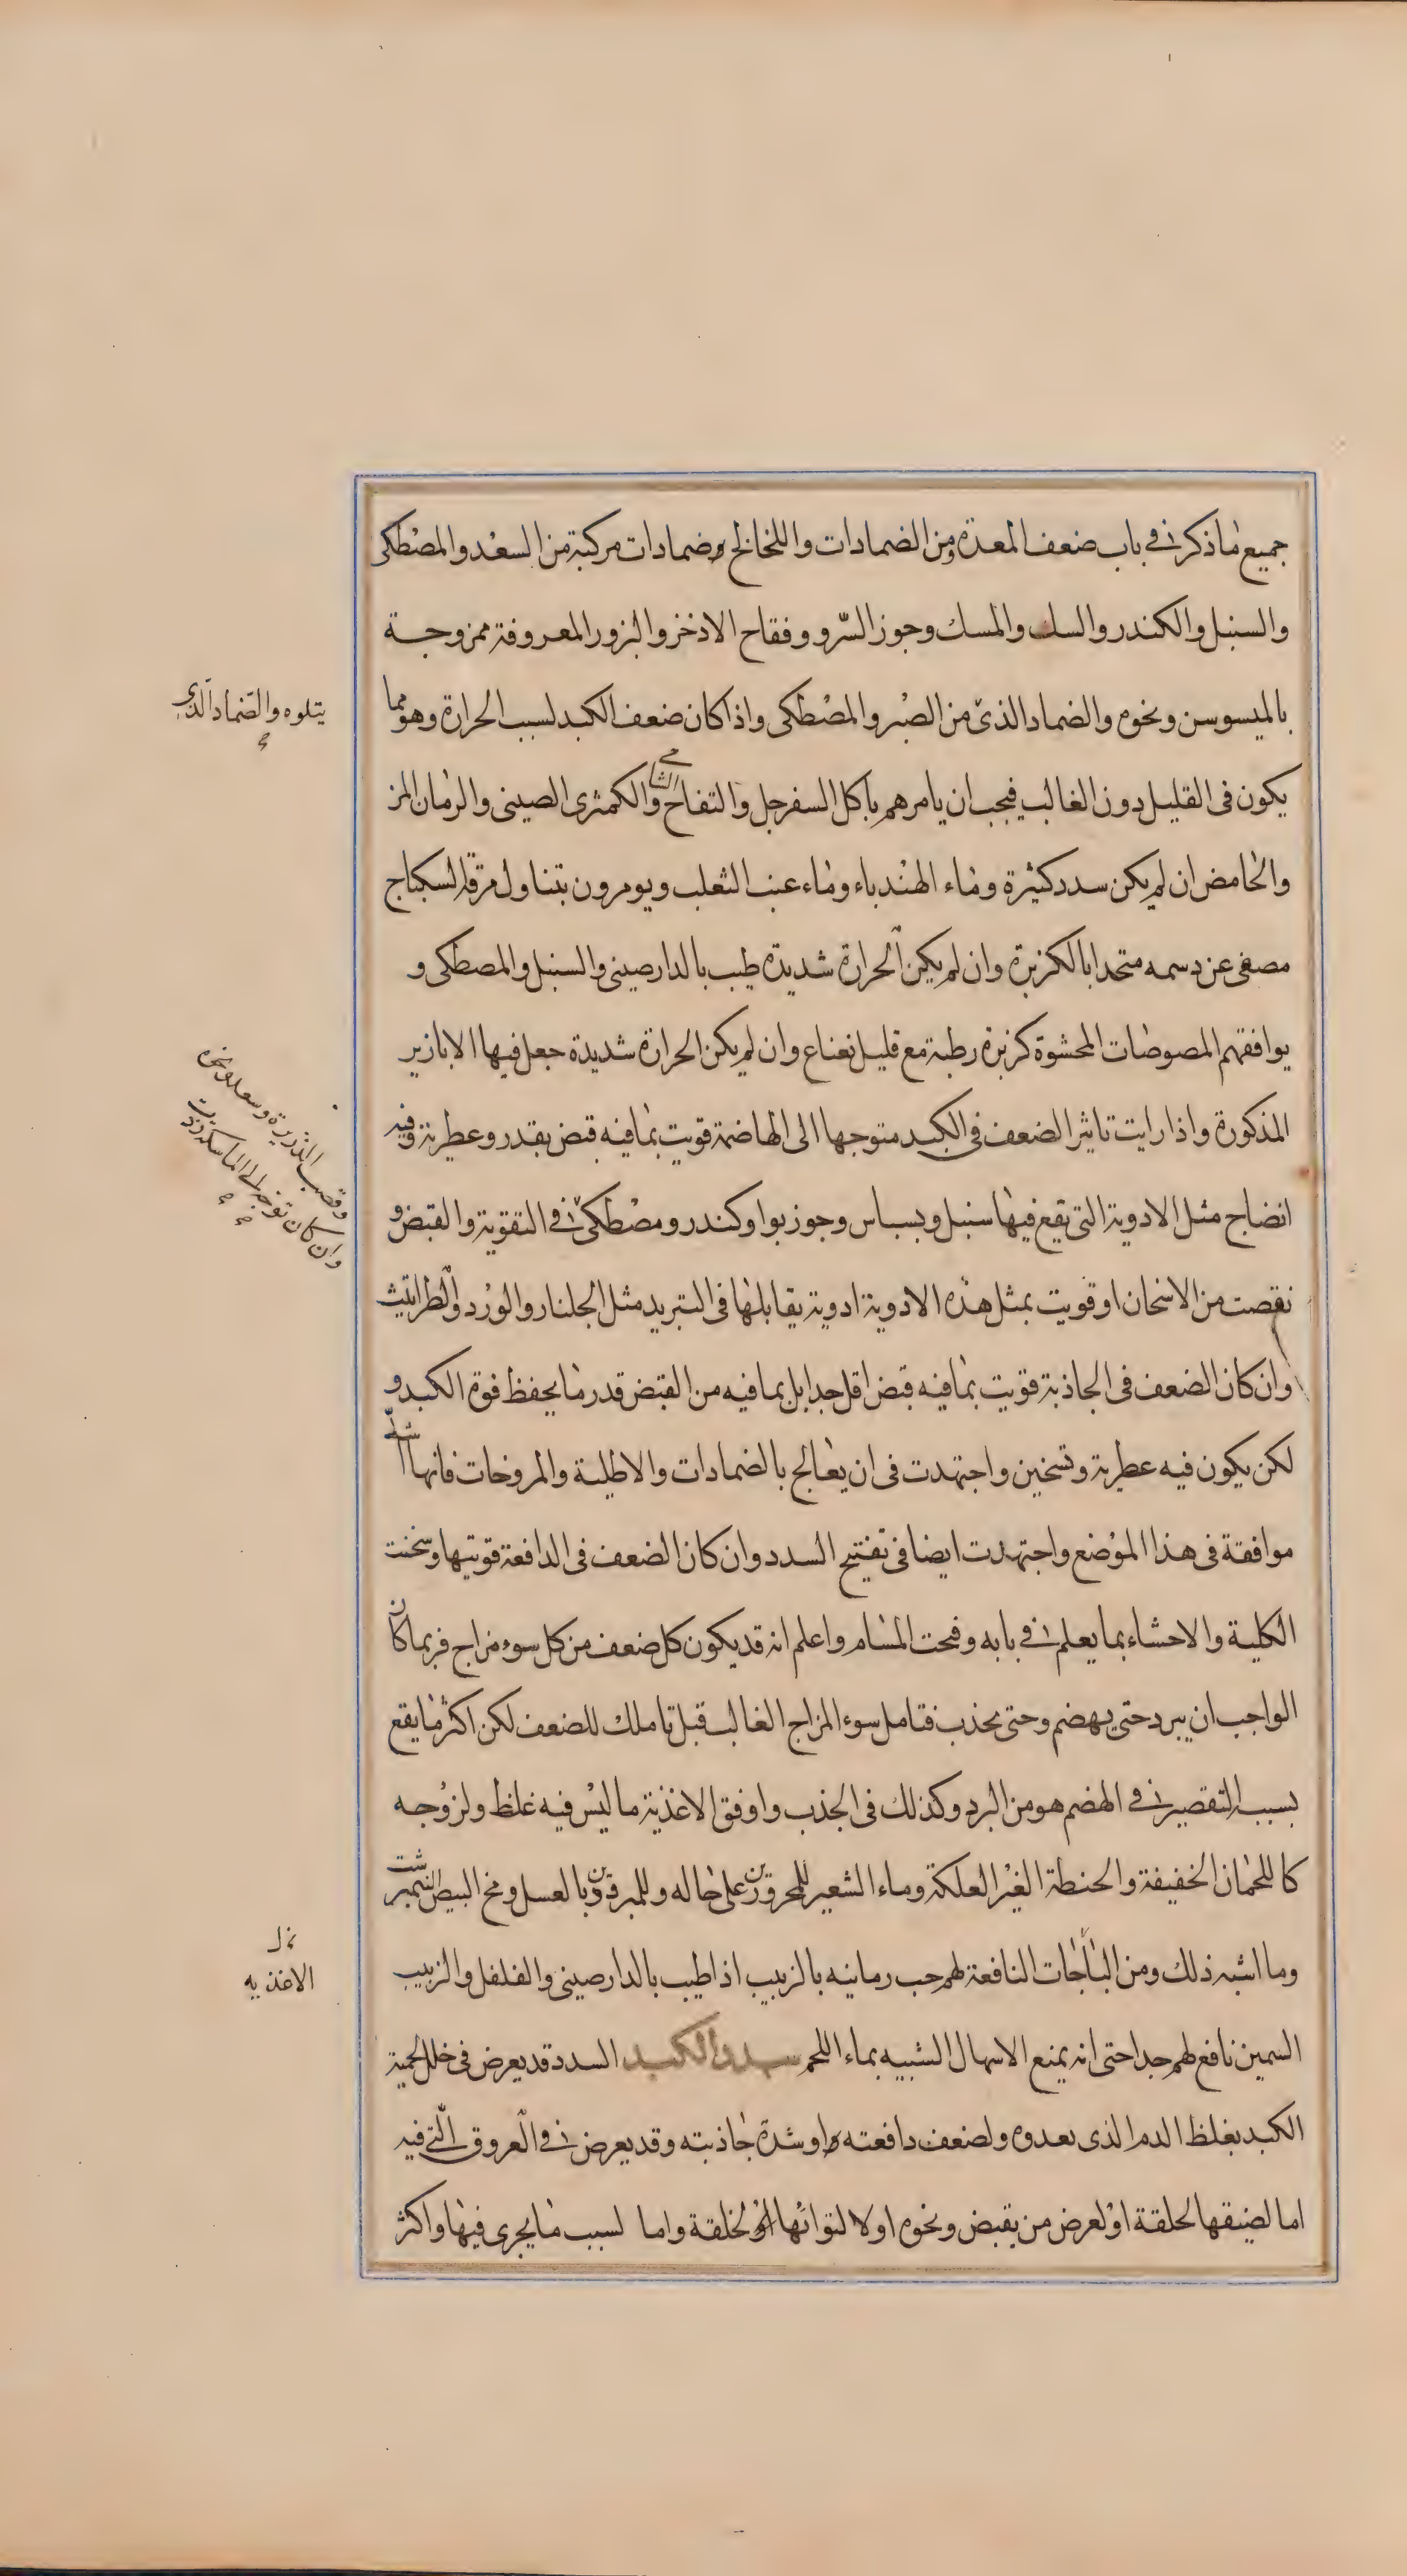 جميع ما ذكر في باب ضعف المعدة ومن الضمادات واللخالخ وضمادات مركبة من السعد والمصطكى
والسنبل والكندر والسك والمسك وجوز السرو وفقاح الاذخر والبزور المعروفة ممزوجة
بالميسوسن ونحوه والضماد الذى من الصبر والمصطكى واذا كان ضعف الكبد لسبب الحرارة وهو مما
يكون فى القليل دون الغالب فيجب ان يامرهم باكل السفرجل والتفاح الشامي والكمثرى الصينى والرمان المز
والحامض ان لم يكن سدد كثيرة وماء الهندباء وماء عنب الثعلب ويومرون بتناول مرقة السكباج
مصفى عن دسمه متخدا بالكزبرة وان لم يكن الحرارة شديدة طيب بالدارصينى والسنبل والمصطكى و
يوافقهم المصوصات المحشوة كزبرة رطبة مع قليل نعناع وان لم يكن الحرارة شديدة جعل فيها الابازير
المذكورة واذا رايت تاثير الضعف فى الكبد متوجها الى الهاضمة قويت بما فيه قبض بقدر وعطرية وفيه
انضاج مثل الادوية التى يقع فيها سنبل وبسباس وجوز بوا وكندر ومصطكى في التقوية والقبض و
نقصت من الاسخان او قويت بمثل هذه الادوية ادوية يقابلها فى التبريد مثل الجلنار والورد والطراثيث
وان كان الضعف فى الجاذبة قويت بما فيه قبض اقل جدا بل بما فيه من القبض قدر ما يحفظ قوة الكبد و
لكن يكون فيه عطرية وتسخين واجتهدت فى ان يعالج بالضمادات والاطلية والمروخات فانها اشد
موافقة فى هذا الموضع واجتهدت ايضا فى تفتيح السدد وان كان الضعف فى الدافعة قويتها وسخنت
الكلية والاحشاء بما يعلم في بابه وفتحت المسام واعلم انه قد يكون كل ضعف من كل سوء مزاج فربما كان
الواجب ان يبرد حتى يهضم وحتى يجذب فتامل سوء المزاج الغالب قبل تاملك للضعف لكن اكثر ما يقع
بسبب التقصير في الهضم هو من البرد وكذلك فى الجذب واوفق الاغذية ما ليس فيه غلظ ولزوجه
كاللحمان الخفيفة والحنطة الغير العلكة وماء الشعير للمحرورين على حاله وللمبرودين بالعسل ومخ البيض النيمبرشت
وما اشبه ذلك ومن الباجات النافعة لهم حب رمانيه بالزبيب اذا طيب بالدارصينى والفلفل والزبيب
السمين نافع لهم جدا حتى انه يمنع الاسهال الشبيه بماء اللحم سدد الكبد السدد قد يعرض فى خلل لحمية
الكبد بغلظ الدم الذى يعدوه ولضعف دافعته او شدة جاذبته وقد يعرض في العروق التي فيه
اما لضيقها لخلقة او لعرض من يقبض ونحوه او لا لتوائها لخلقة واما لسبب ما يجرى فيها واكثر
يتلوه والضماد الذى
وقصب الذريرة وسعد ونحوه
وان كان توجه الى الماسكة زدت
الاغذيه